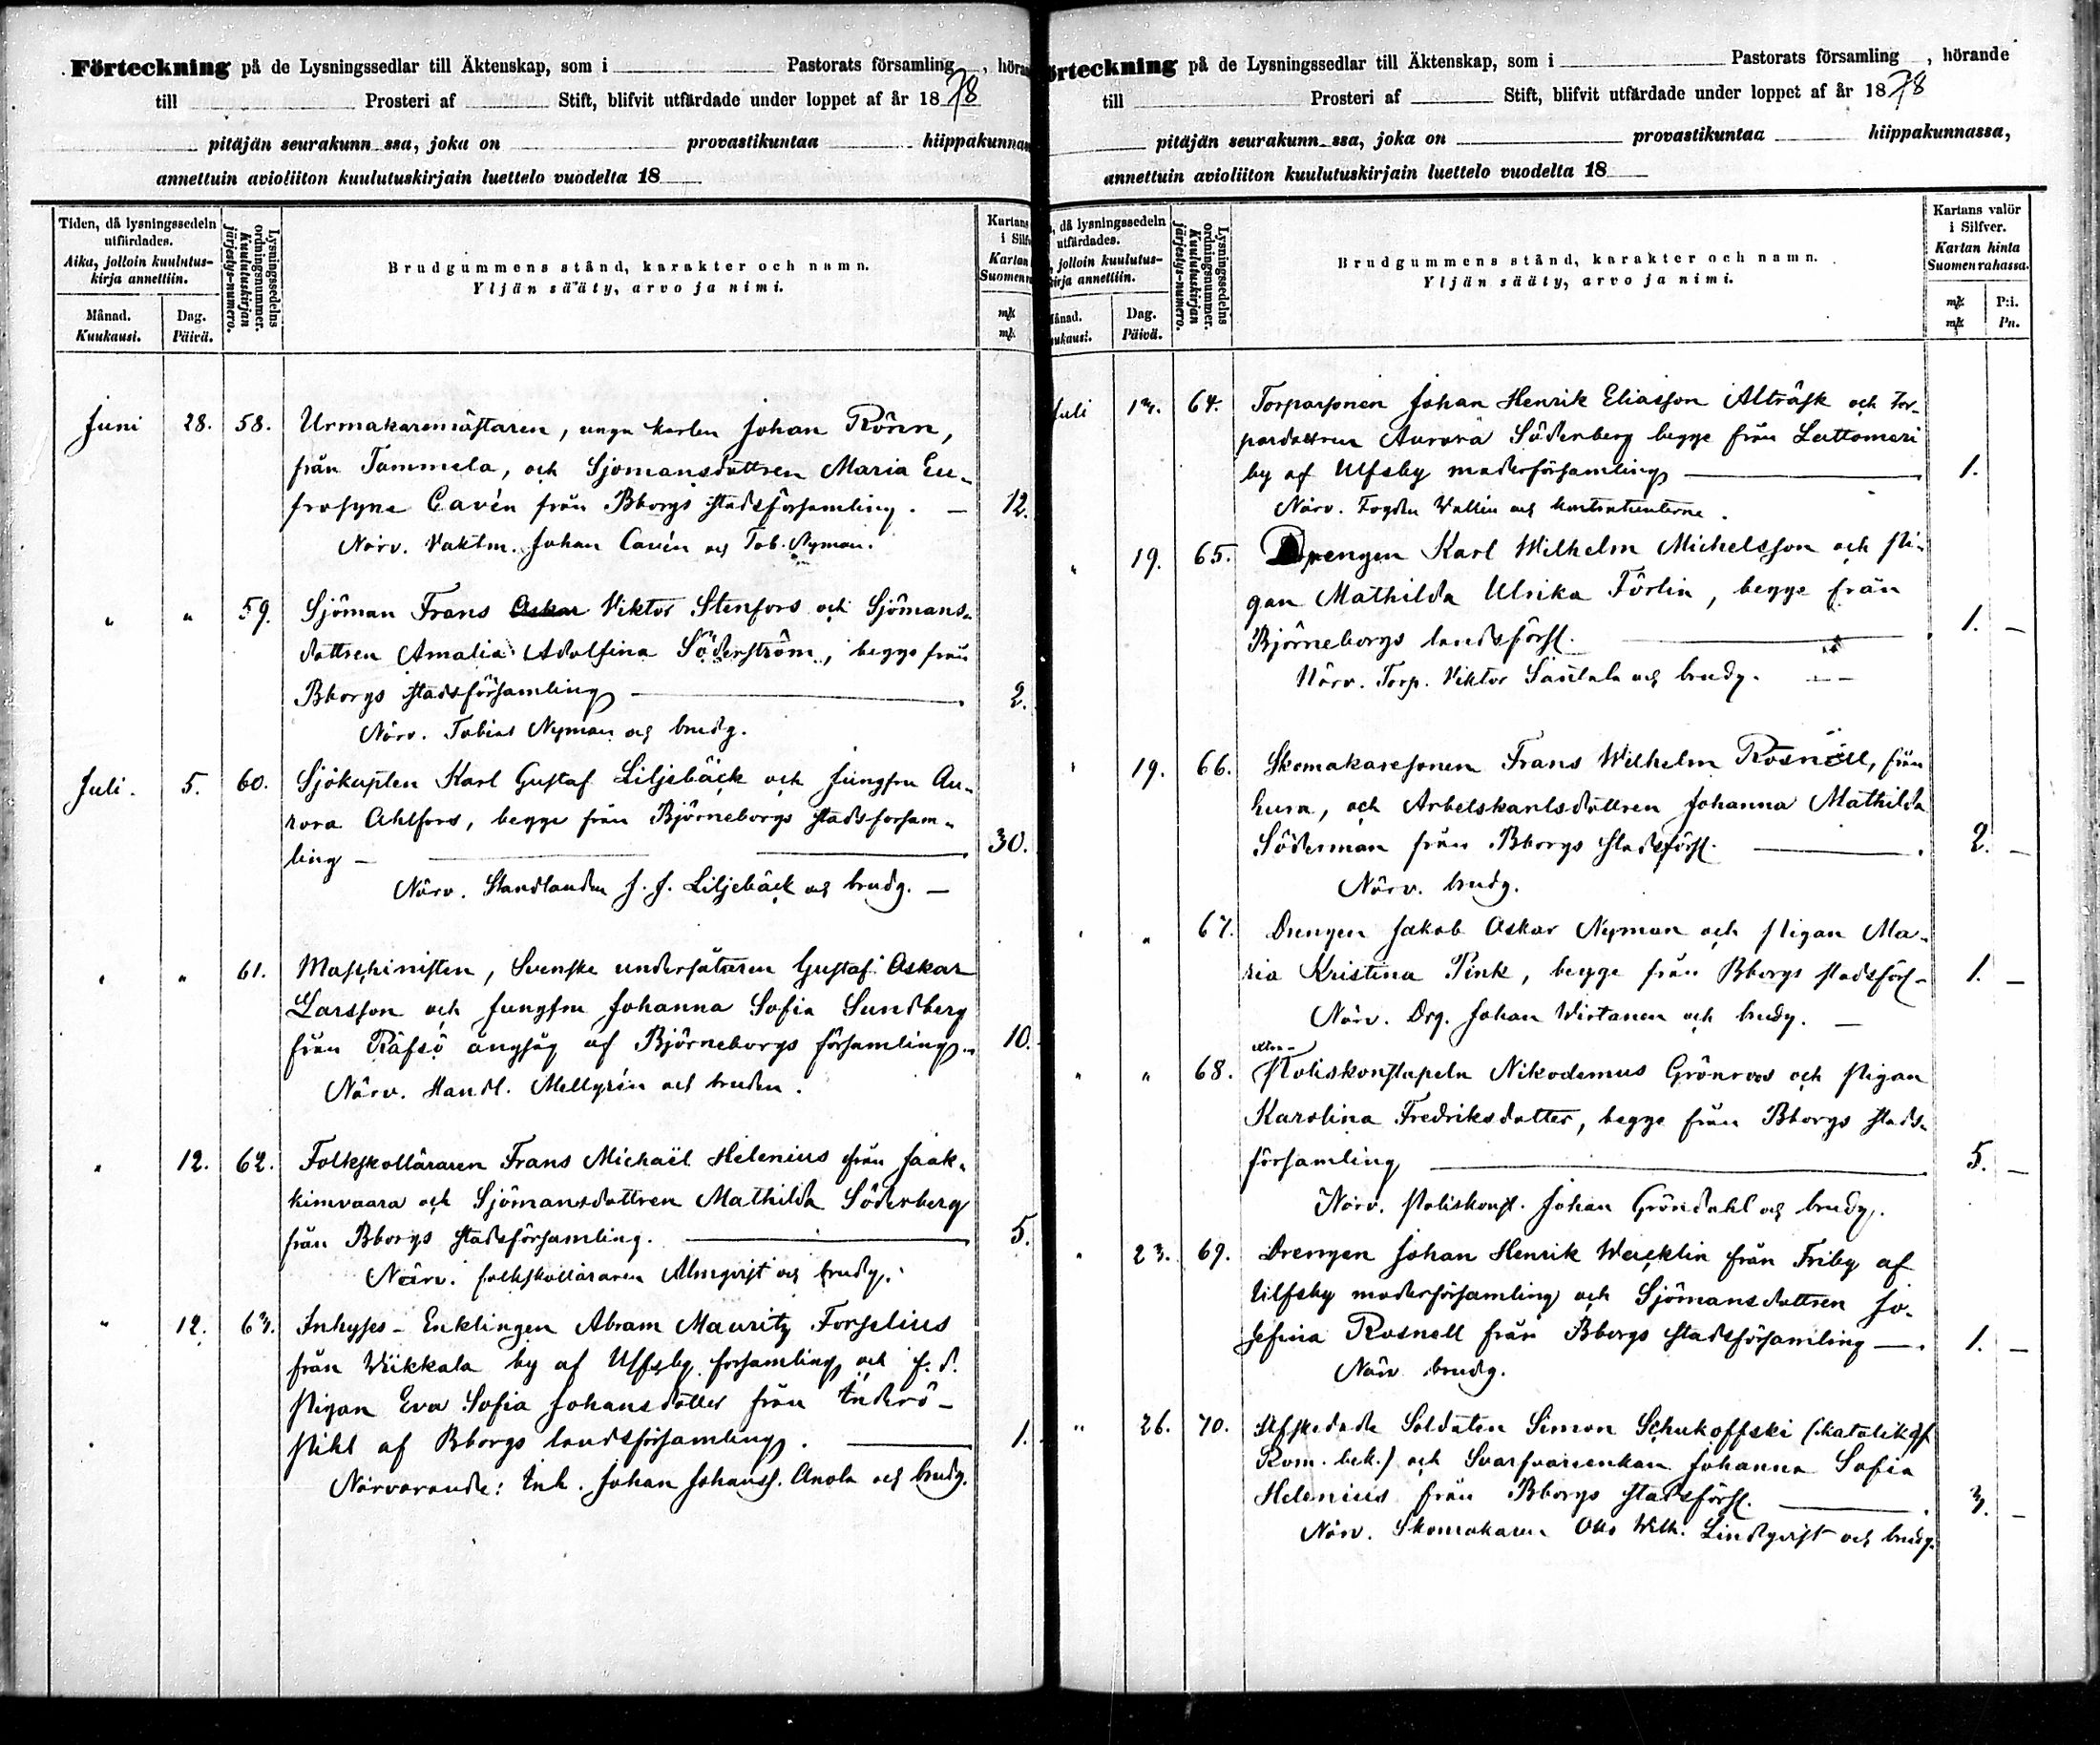 Förteckning på de Lysningssedlar till Äktenskap, som i Pastorats församling, höran
till Prosteri af Stift, blifvit utfärdade under loppet af år 1878
pitäjän seurakunn ssa, joka on provastikuntaa hiippakunnan
annettuin avioliiton kuulutuskirjain luettelo vuodelta 18
Tiden, då lysningssedeln utfärdades.
Aika, jolloin kuulutuskirja annettiin.
Månad.
Kuukausi.
Dag.
Päivä.
Lysningssedelns ordningsnummer.
Kuulutuskirjan järjestys-numero.
Brudgummens stånd, karakter och namn.
Yljän sääty, arvo ja nimi.
Kartans
i Silf
Kartan
Suomenra
mk
mk.
Juni 28. 58. Urmakaremästaren, unga karlen Johan Rönn,
från Tammela, och Sjömansdottren Maria Eu-
frosyne Cavén från Bborgs stadsförsamling. — 12.
Närv. Vaktm. Johan Cavén och Tob. Nyman.
" " 59. Sjöman Frans Oskar Viktor Stenfors och Sjömans-
dottren Amalia Adolfina Söderström, begge från
Bborgs stadsförsamling — 2.
Närv. Tobias Nyman och brudg.
Juli. 5. 60. Sjökapten Karl Gustaf Liljebäck och Jungfru Au-
rora Ahlfors, begge från Björneborgs stadsförsam-
ling — 30.
Närv. Handlanden J. J. Liljebäck och brudg. —
" " 61. Maschinisten, Svenske undersåtaren Gustaf Oskar
Larsson och Jungfru Johanna Sofia Sundberg
från Räfsö ångsåg af Björneborgs församling. 10.
Närv. Handl. Mellgrén och bruden.
" 12. 62. Folkskolläraren Frans Michaël Helenius från Jaak-
kimvaara och Sjömansdottren Mathilda Söderberg
från Bborgs stadsförsamling. — 5.
Närv. folkskolläraren Almqvist och brudg.
" 12. 63. Inhyses-Enklingen Abram Mauritz Forselius
från Wiikkala by af Ulfsby församling och f. d.
Pigan Eva Sofia Johansdotter från Inderö-
Pihl af Bborgs landsförsamling. — 1.
Närvarande: Inh. Johan Johanss. Anola och brudg.
örteckning på de Lysningssedlar till Äktenskap, som i Pastorats församling, hörande
till Prosteri af Stift, blifvit utfärdade under loppet af år 1878
pitäjän seurakunn ssa, joka on provastikuntaa hiippakunnassa,
annettuin avioliiton kuulutuskirjain luettelo vuodelta 18
, då lysningssedeln
utfärdades.
, jolloin kuulutus-
kirja annettiin.
Månad.
ukausi.
Dag.
Päivä.
Lysningssedelns ordningsnummer.
Kuulutuskirjan järjestys-numero.
Brudgummens stånd, karakter och namn.
Yljän sääty, arvo ja nimi.
Kartans valör
i Silfver.
Kartan hinta
Suomen rahassa.
mk P:i.
mk Pn.
Juli 13. 64. Torparsonen Johan Henrik Eliasson Alträsk och Tor-
pardottren Aurora Söderberg begge från Lattomeri
by af Ulfsby moderförsamling — 1.
Närv. Fogden Wallin och kontrahenterne.
" 19. 65. Drengen Karl Wilhelm Michelsson och Pi-
gan Mathilda Ulrika Förlin, begge från
Björneborgs landsförsl. — 1. —
Närv. Torp. Viktor Säntala och brudg.
" 19. 66. Skomakaresonen Frans Wilhelm Rosnëll, från
Eura, och Arbetskarlsdottren Johanna Mathilda
Söderman från Bborgs stadsförsl. — 2. —
Närv. brudg.
" " 67. Drengen Jakob Oskar Nyman och Pigan Ma-
ria Kristina Pink, begge från Bborgs stadsförs- 1. —
Närv. Drg. Johan Wirtanen och brudg. —
" " 68. extra-Poliskonstapeln Nikodemus Grönroos och Pigan
Karolina Fredriksdotter, begge från Bborgs stads-
församling — 5. —
Närv. Poliskonst. Johan Gröndahl och brudg.
" 23. 69. Drengen Johan Henrik Wercklin från Friby af
Ulfsby moderförsamling och Sjömansdottren Jo-
sefina Rosnell från Bborgs stadsförsamling — 1. —
Närv brudg.
" 26. 70. Afskedade Soldaten Simon Schukoffski (katolik af
Rom. bek.) och Svarfvareenkan Johanna Sofia
Helenius från Bborgs stadsförsl. — 3. —
Närv. Skomakaren Otto Wilh. Lindqvist och brudg.